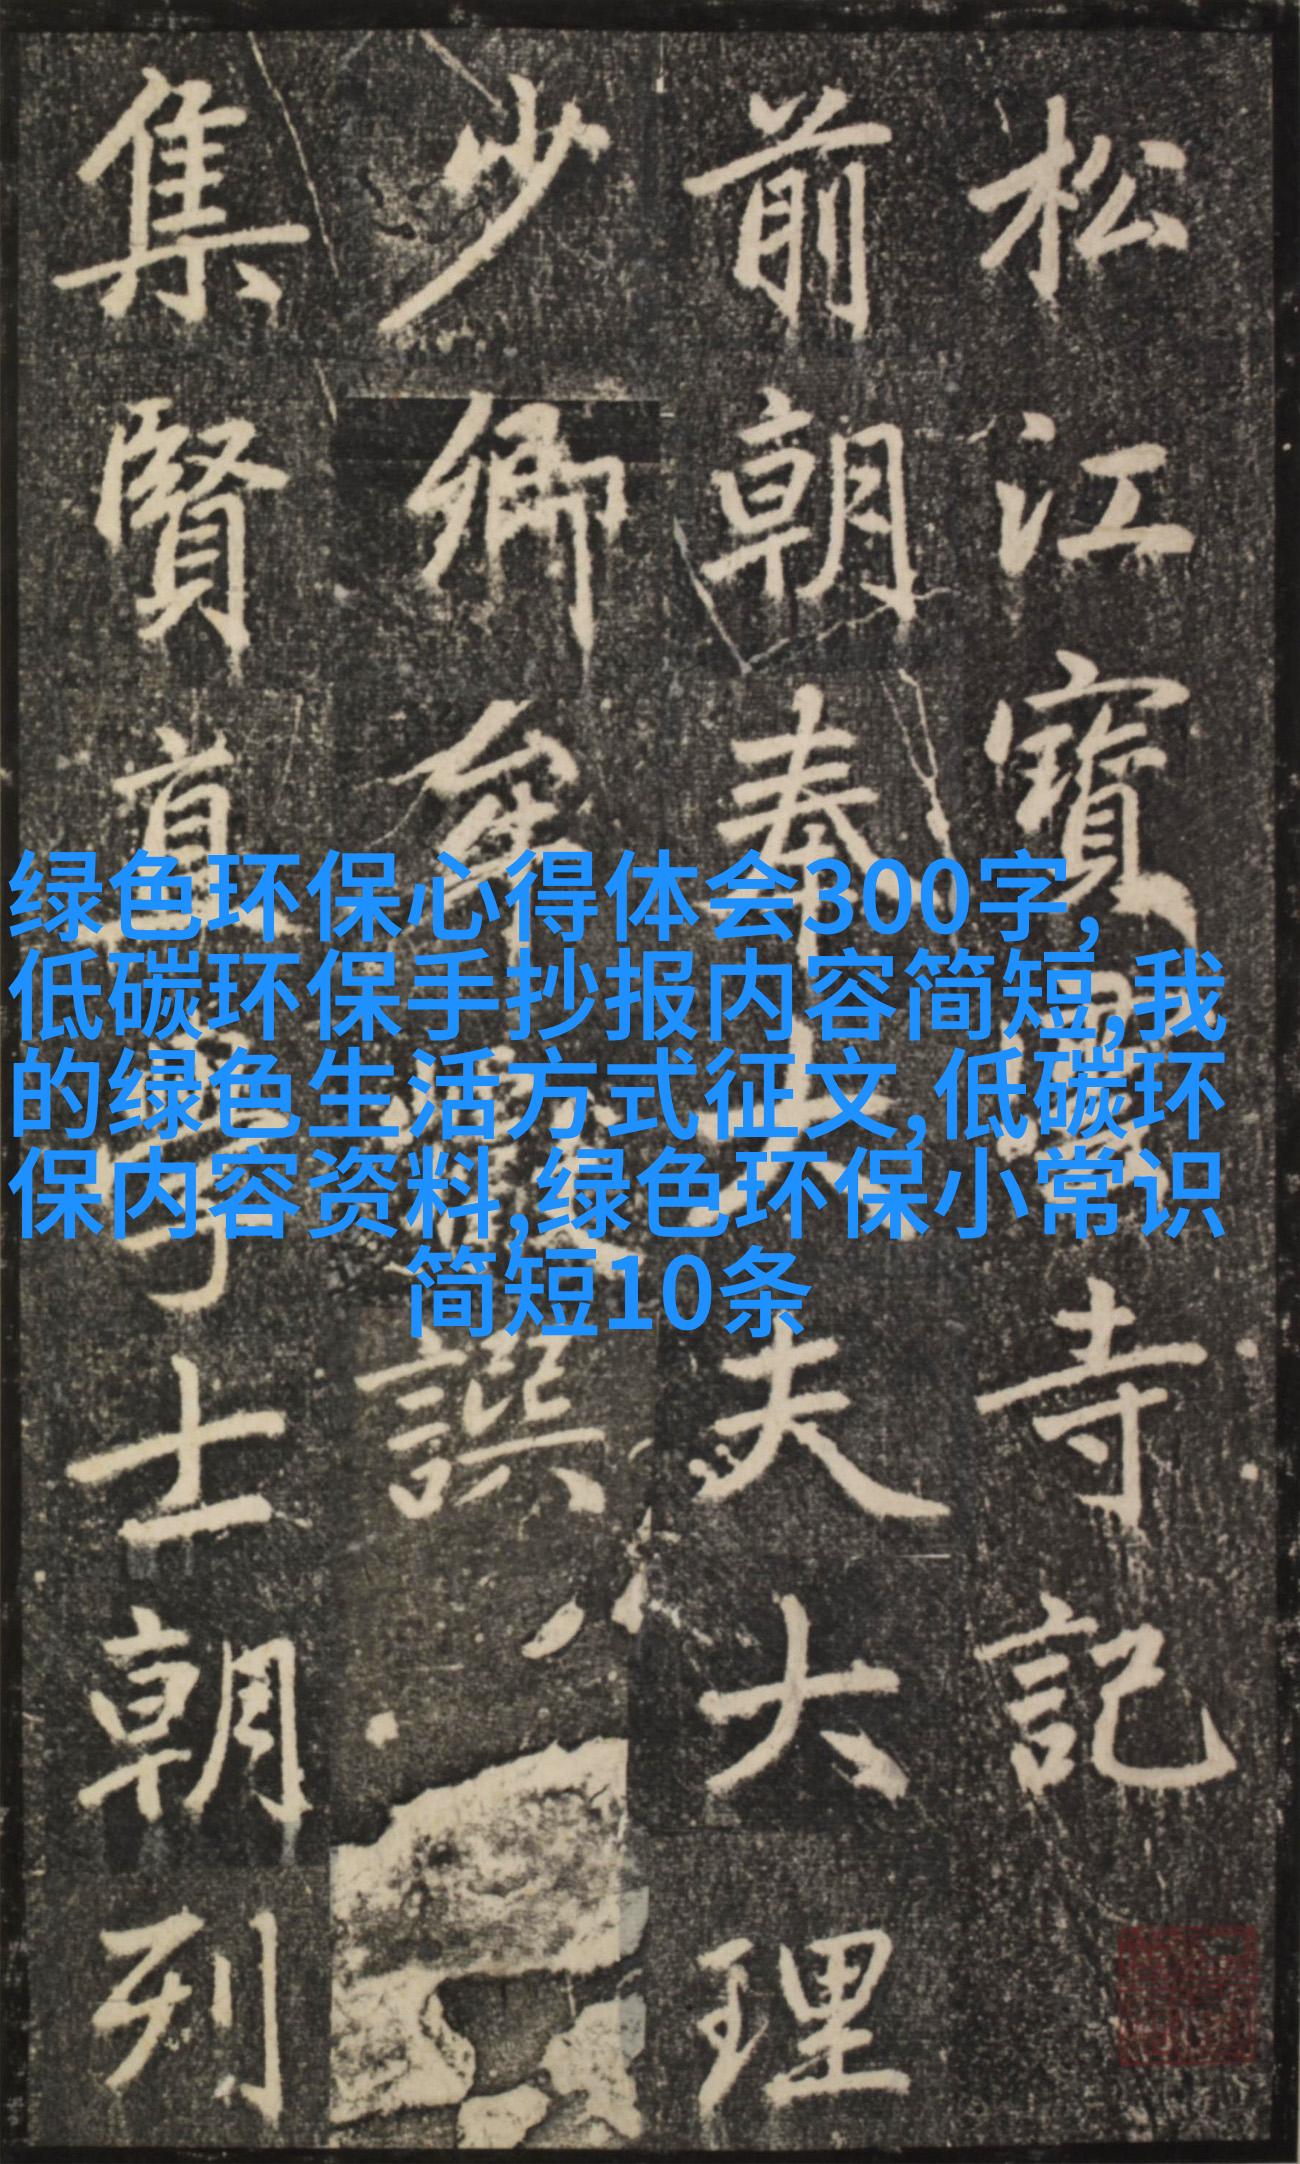 松江寶寺記
前朝奉大夫大理
少卿牟譔
集賢直學士朝列
绿色环保心得体会300字,
低碳环保手抄报内容简短,我
的绿色生活方式征文,低碳环
保内容资料,绿色环保小常识
简短10条